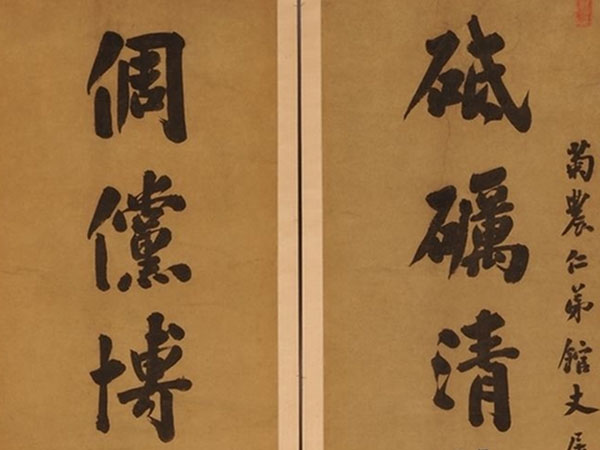 菊農仁弟館丈
砥礪清
倜儻博